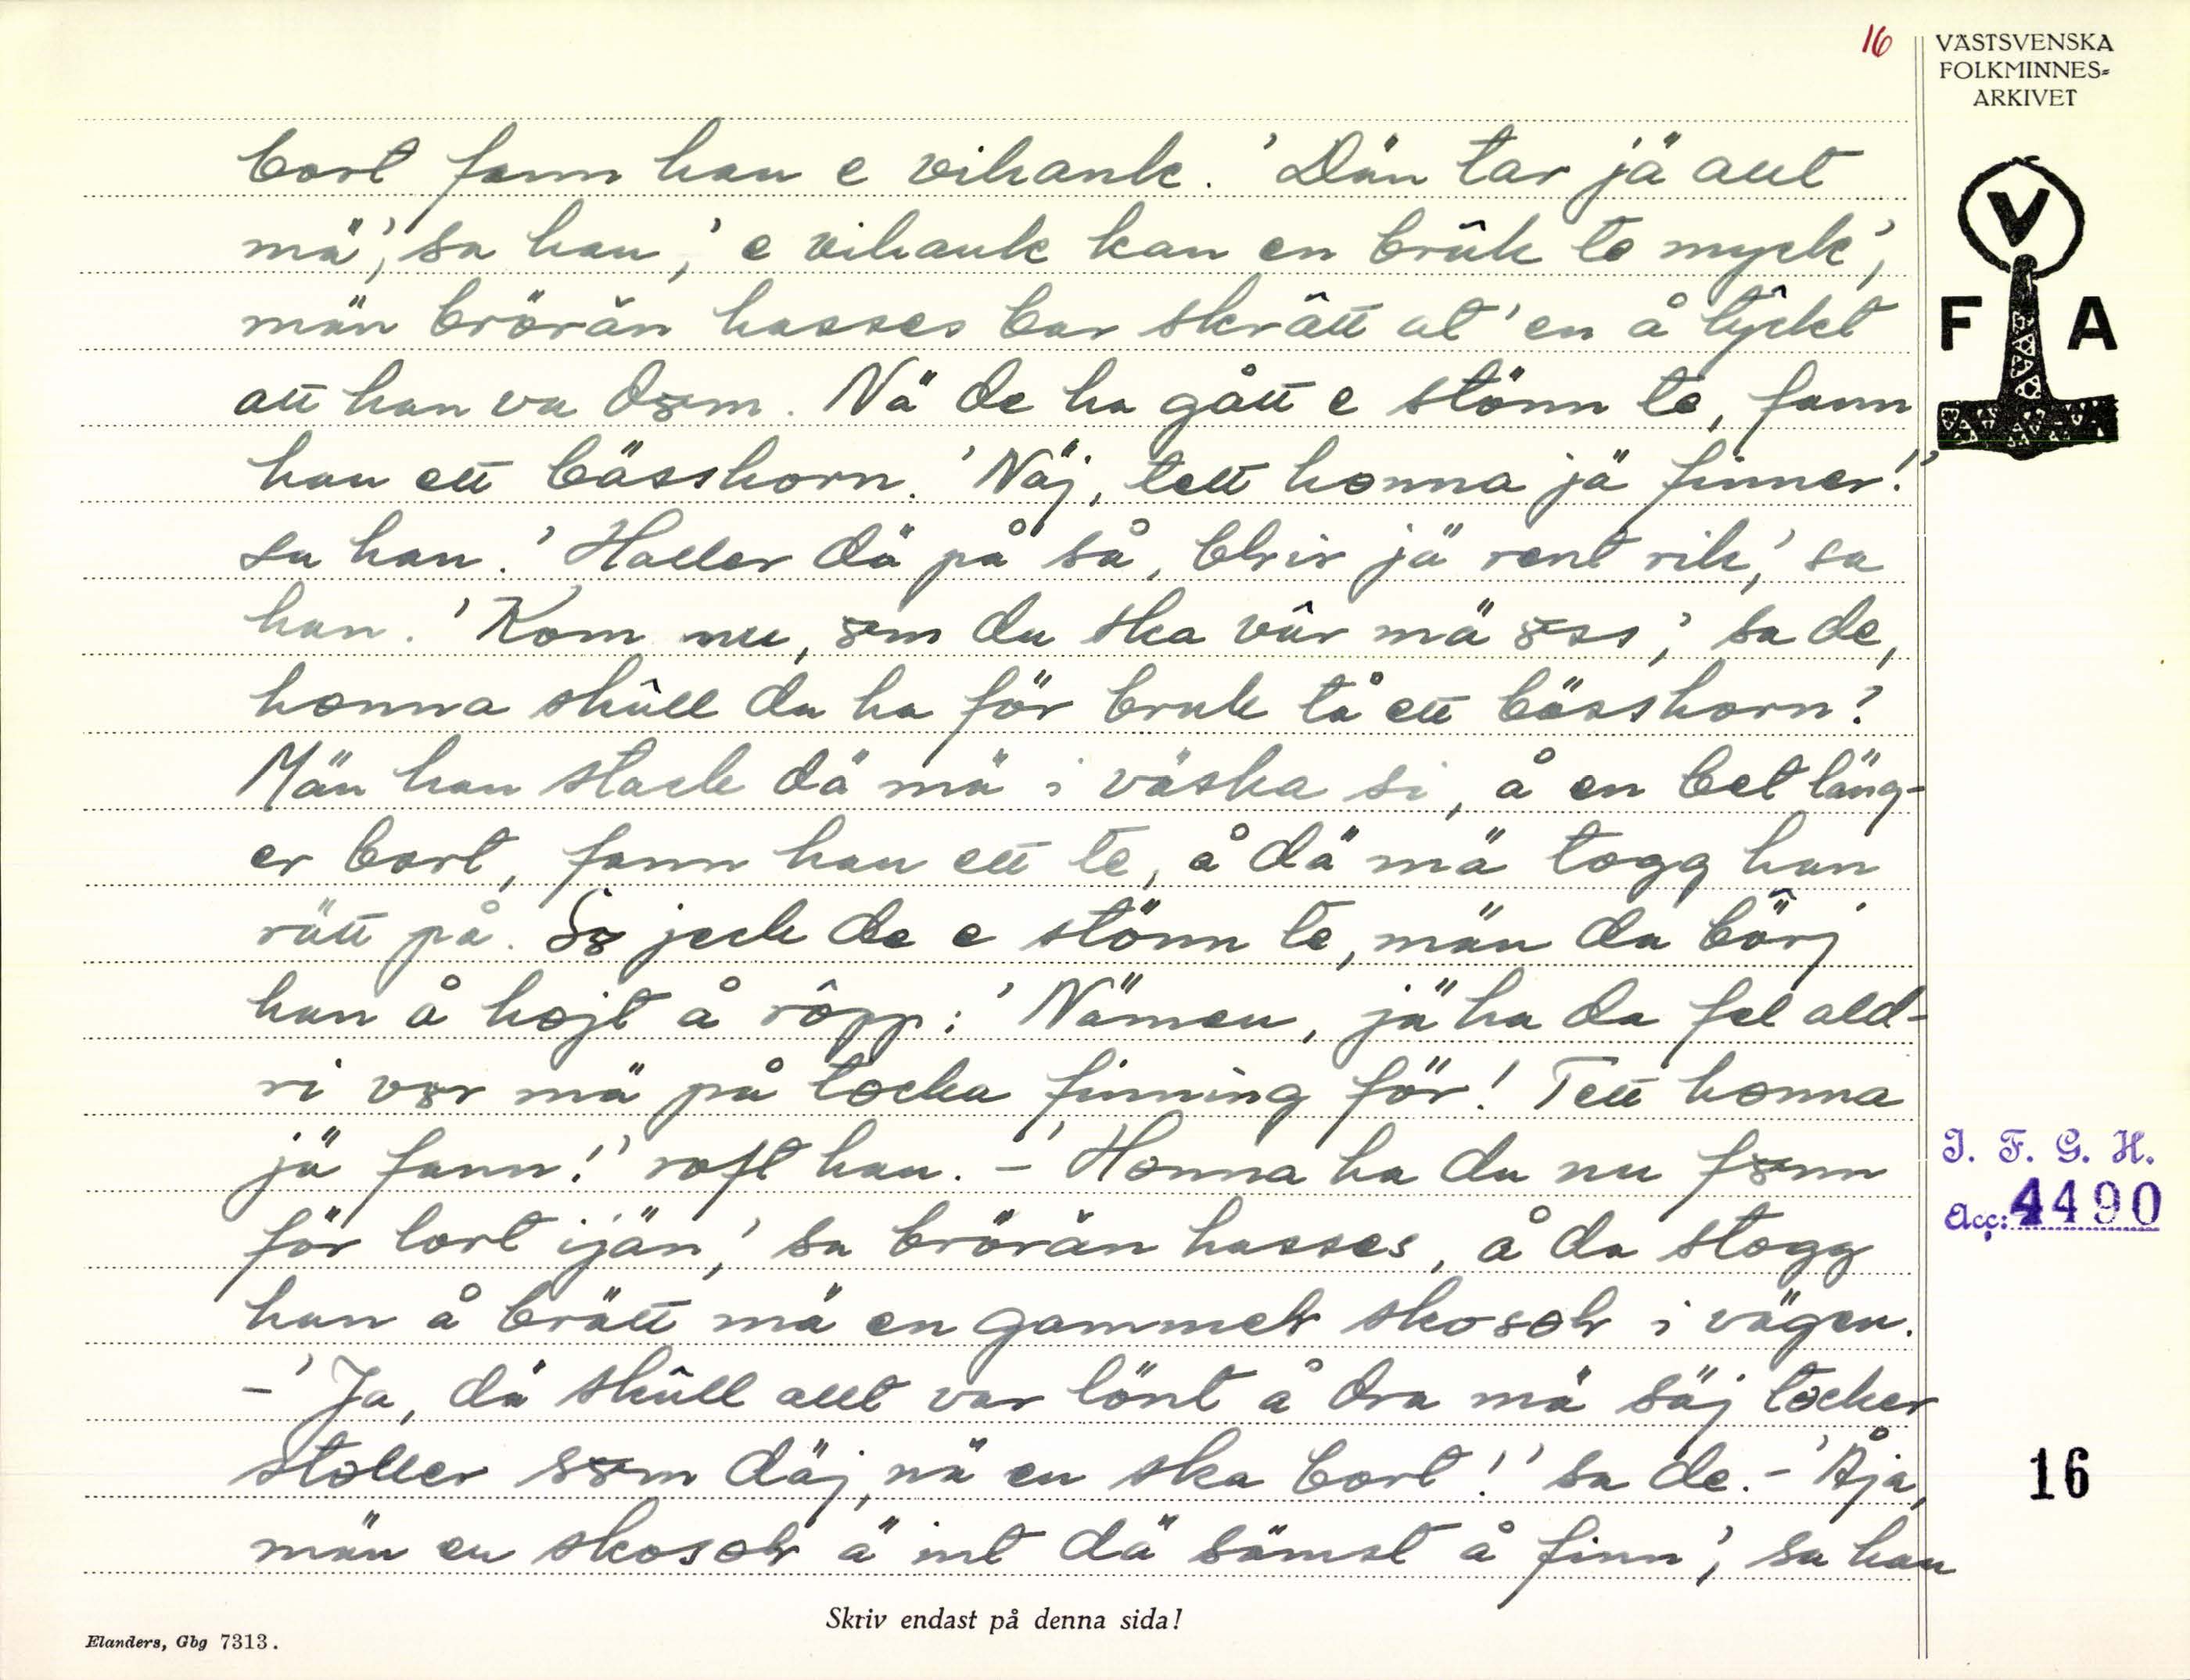 16
VÄSTSVENSKA
FOLKMINNES-
ARKIVET
V
F A
bort fann han e vihank. 'Dän tar jä allt
mä', sa han, 'e vihank kan en brûk te myck',
män brörän hasses bar skrâtt at'en å tŷckt
att han va dȣm. Nä de ha gått e stönn te, fann
han ett bässhorn. 'Näj, tett honna jä finner!'
sa han. 'Haller dä på så, blir jä rent rik,' sa
han. 'Kom nu, ȣm du ska vâr mä ȣss,' sa de,
honna skûll du ha för bruk tå ett bässhorn?
Män han stack dä mä i väska si, å en bet läng-
er bort, fann han ett te, å dä mä togg han
rätt på. Sȣ jeck de e stönn te, män da bö̂rj
han å hojt å rôpp: 'Nämen, jä ha da fel ald-
ri vȣr mä på tocka finning för! Tett honna
jä fann!' roft han. - 'Honna ha du nu fȣnn
för lort ijän,' sa brörän hasses, å da stogg
han å brätt mä en gammel skosol i vägen.
- 'Ja, dä skûll allt var lönt å dra mä säj tocker
stoller sȣm däj, nä en ska bort!' sa de. - 'Åja,
män en skosol ä int dä sämst å finn', sa han
I. F. G. H.
Acc: 4490
16
Skriv endast på denna sida!
Elanders, Gbg 7313.